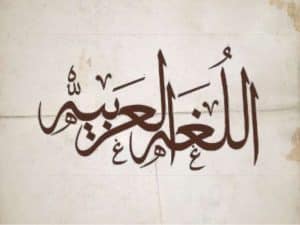 اللُغَة العَرَبيه